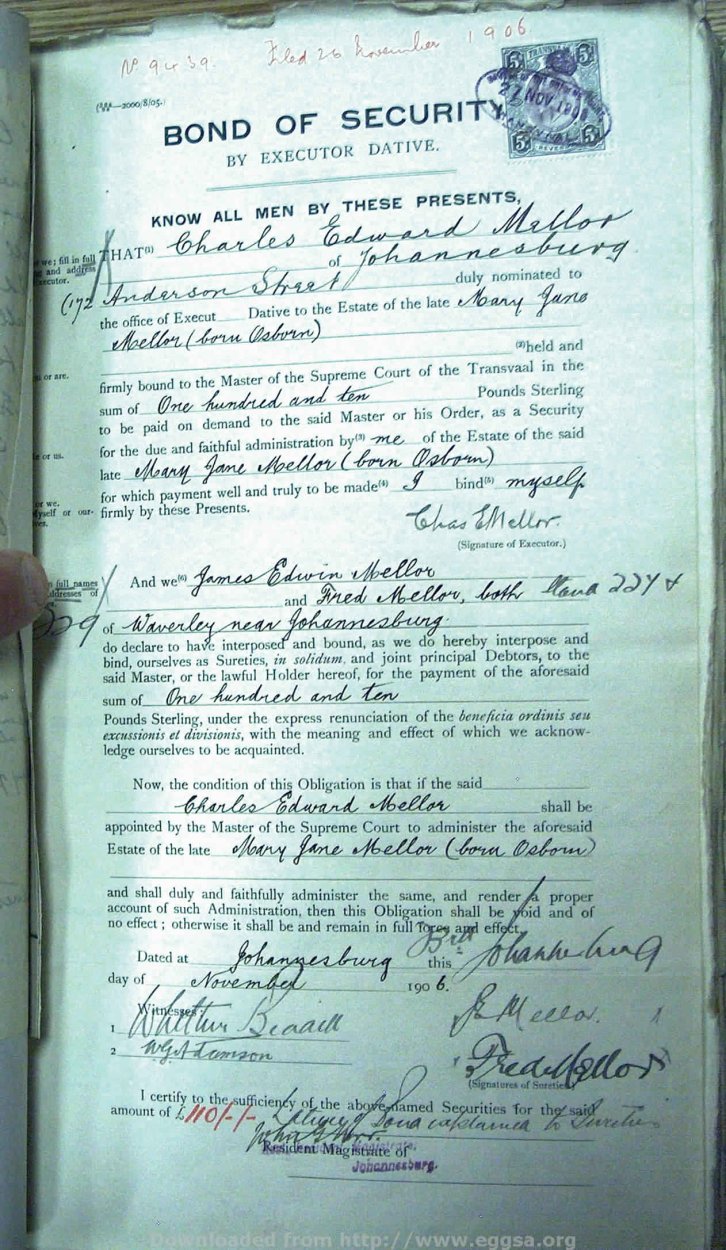 No 9439. Filed 26 November 1906
—2000/8/05.)
TRANSVAAL
27 NOV. 19
BOND OF SECURITY
BY EXECUTOR DATIVE.
KNOW ALL MEN BY THESE PRESENTS,
we; fill in full
and address
ecutor.
THAT(1) Charles Edward Mellor
of Johannesburg
(172 Anderson Street duly nominated to
the office of Execut Dative to the Estate of the late Mary Jane
Mellor (born Osborn)
(2)held and
or are.
firmly bound to the Master of the Supreme Court of the Transvaal in the
sum of One hundred and ten Pounds Sterling
to be paid on demand to the said Master or his Order, as a Security
for the due and faithful administration by(3) me of the Estate of the said
e or us.
late Mary Jane Mellor (born Osborn)
for which payment well and truly to be made(4) I bind(5) myself
or we.
yself or our-
ves.
firmly by these Presents.
Chas E Mellor.
(Signature of Executor.)
full names
ddresses of
And we(6) James Edwin Mellor
and Fred Mellor, both 224 &
229 of Waverley near Johannesburg.
do declare to have interposed and bound, as we do hereby interpose and
bind, ourselves as Sureties, in solidum, and joint principal Debtors, to the
said Master, or the lawful Holder hereof, for the payment of the aforesaid
sum of One hundred and ten
Pounds Sterling, under the express renunciation of the beneficia ordinis seu
excussionis et divisionis, with the meaning and effect of which we acknow-
ledge ourselves to be acquainted.
Now, the condition of this Obligation is that if the said
Charles Edward Mellor shall be
appointed by the Master of the Supreme Court to administer the aforesaid
Estate of the late Mary Jane Mellor (born Osborn)
and shall duly and faithfully administer the same, and render a proper
account of such Administration, then this Obligation shall be void and of
no effect; otherwise it shall be and remain in full force and effect.
Dated at Johannesburg this Johannesburg
day of November 1906.
Witnesses:
1
J E Mellor.
2 W.G. Adamson
Fred Mellor
(Signatures of Sureties
I certify to the sufficiency of the above-named Securities for the said
amount of £110/-/- Nature of Bond explained to Sureties
Resident Magistrate of
Johannesburg.
Downloaded from http://www.eggsa.org